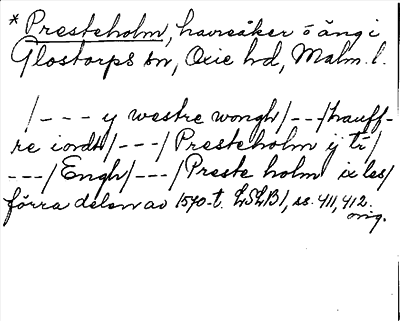 * Presteholm, havreåker o äng i
Glostorps sn, Oxie hd, Malm. l.
/--- y westre wongh/---/hauff-
re iordt/---/Presteholm ÿ tï/
---/Engh/---/Preste holm ix les/
förra delen av 1570-t. LSLB1, ss. 411, 412.
orig.